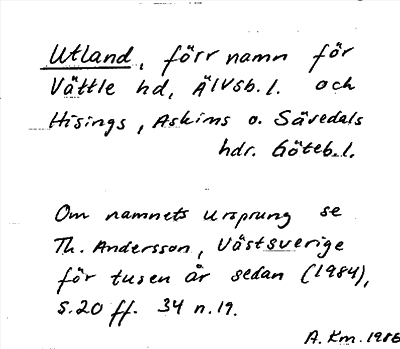 Utland, förr namn för
Vättle hd, Älvsb. l. och
Hisings, Askims o. Sävedals
hdr. Göteb. l.
Om namnets ursprung se
Th. Andersson, Västsverige
för tusen år sedan (1984),
s. 20 ff. 34 n. 19.
A. Km. 1986